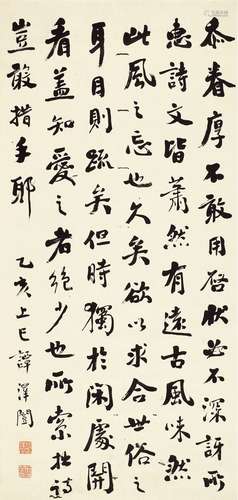 忝眷厚不敢用啓狀必不深訝所
惠詩文皆蕭然有遠古風味然
此風之忘也久矣欲以求合世俗之
耳目則疏矣但時獨於閑處開
看蓋知愛之者絕少也所索拙詩
豈敢措手耶
乙亥上巳譚澤闓